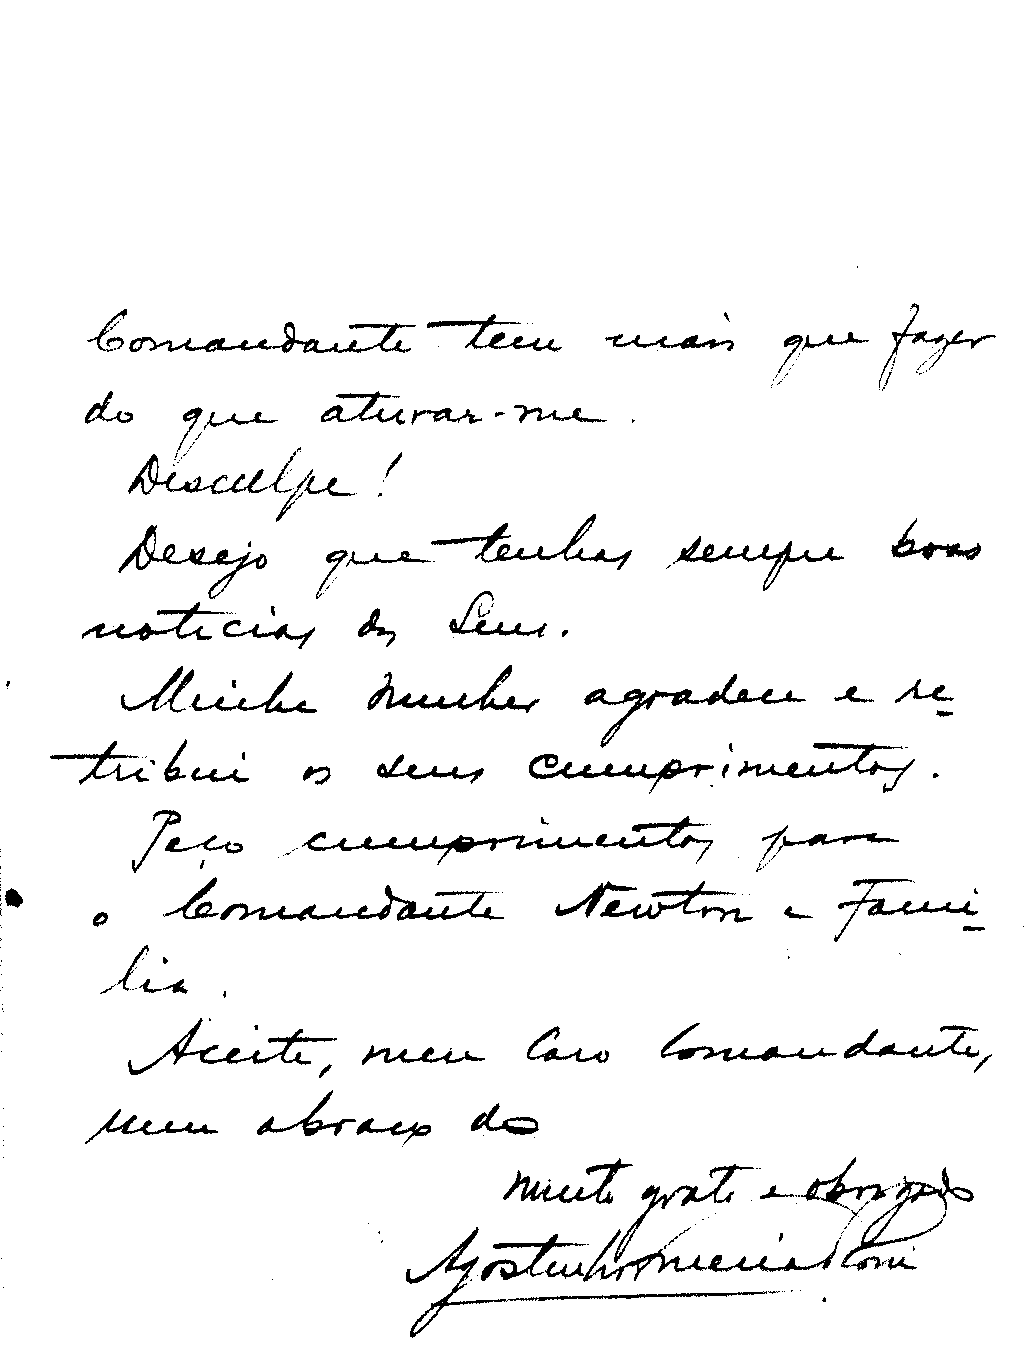 Comandante tem mais que fazer
do que aturar-me.
Desculpe!
Desejo que tenhas sempre boas
noticias dos Seus.
Minha mulher agradece e re-
tribui os seus cumprimentos.
Peço cumprimentos para
o Comandante Newton e Fami-
lia.
Aceite, meu Caro Comandante,
um abraço do
muito grato e obrigado
Agostinho